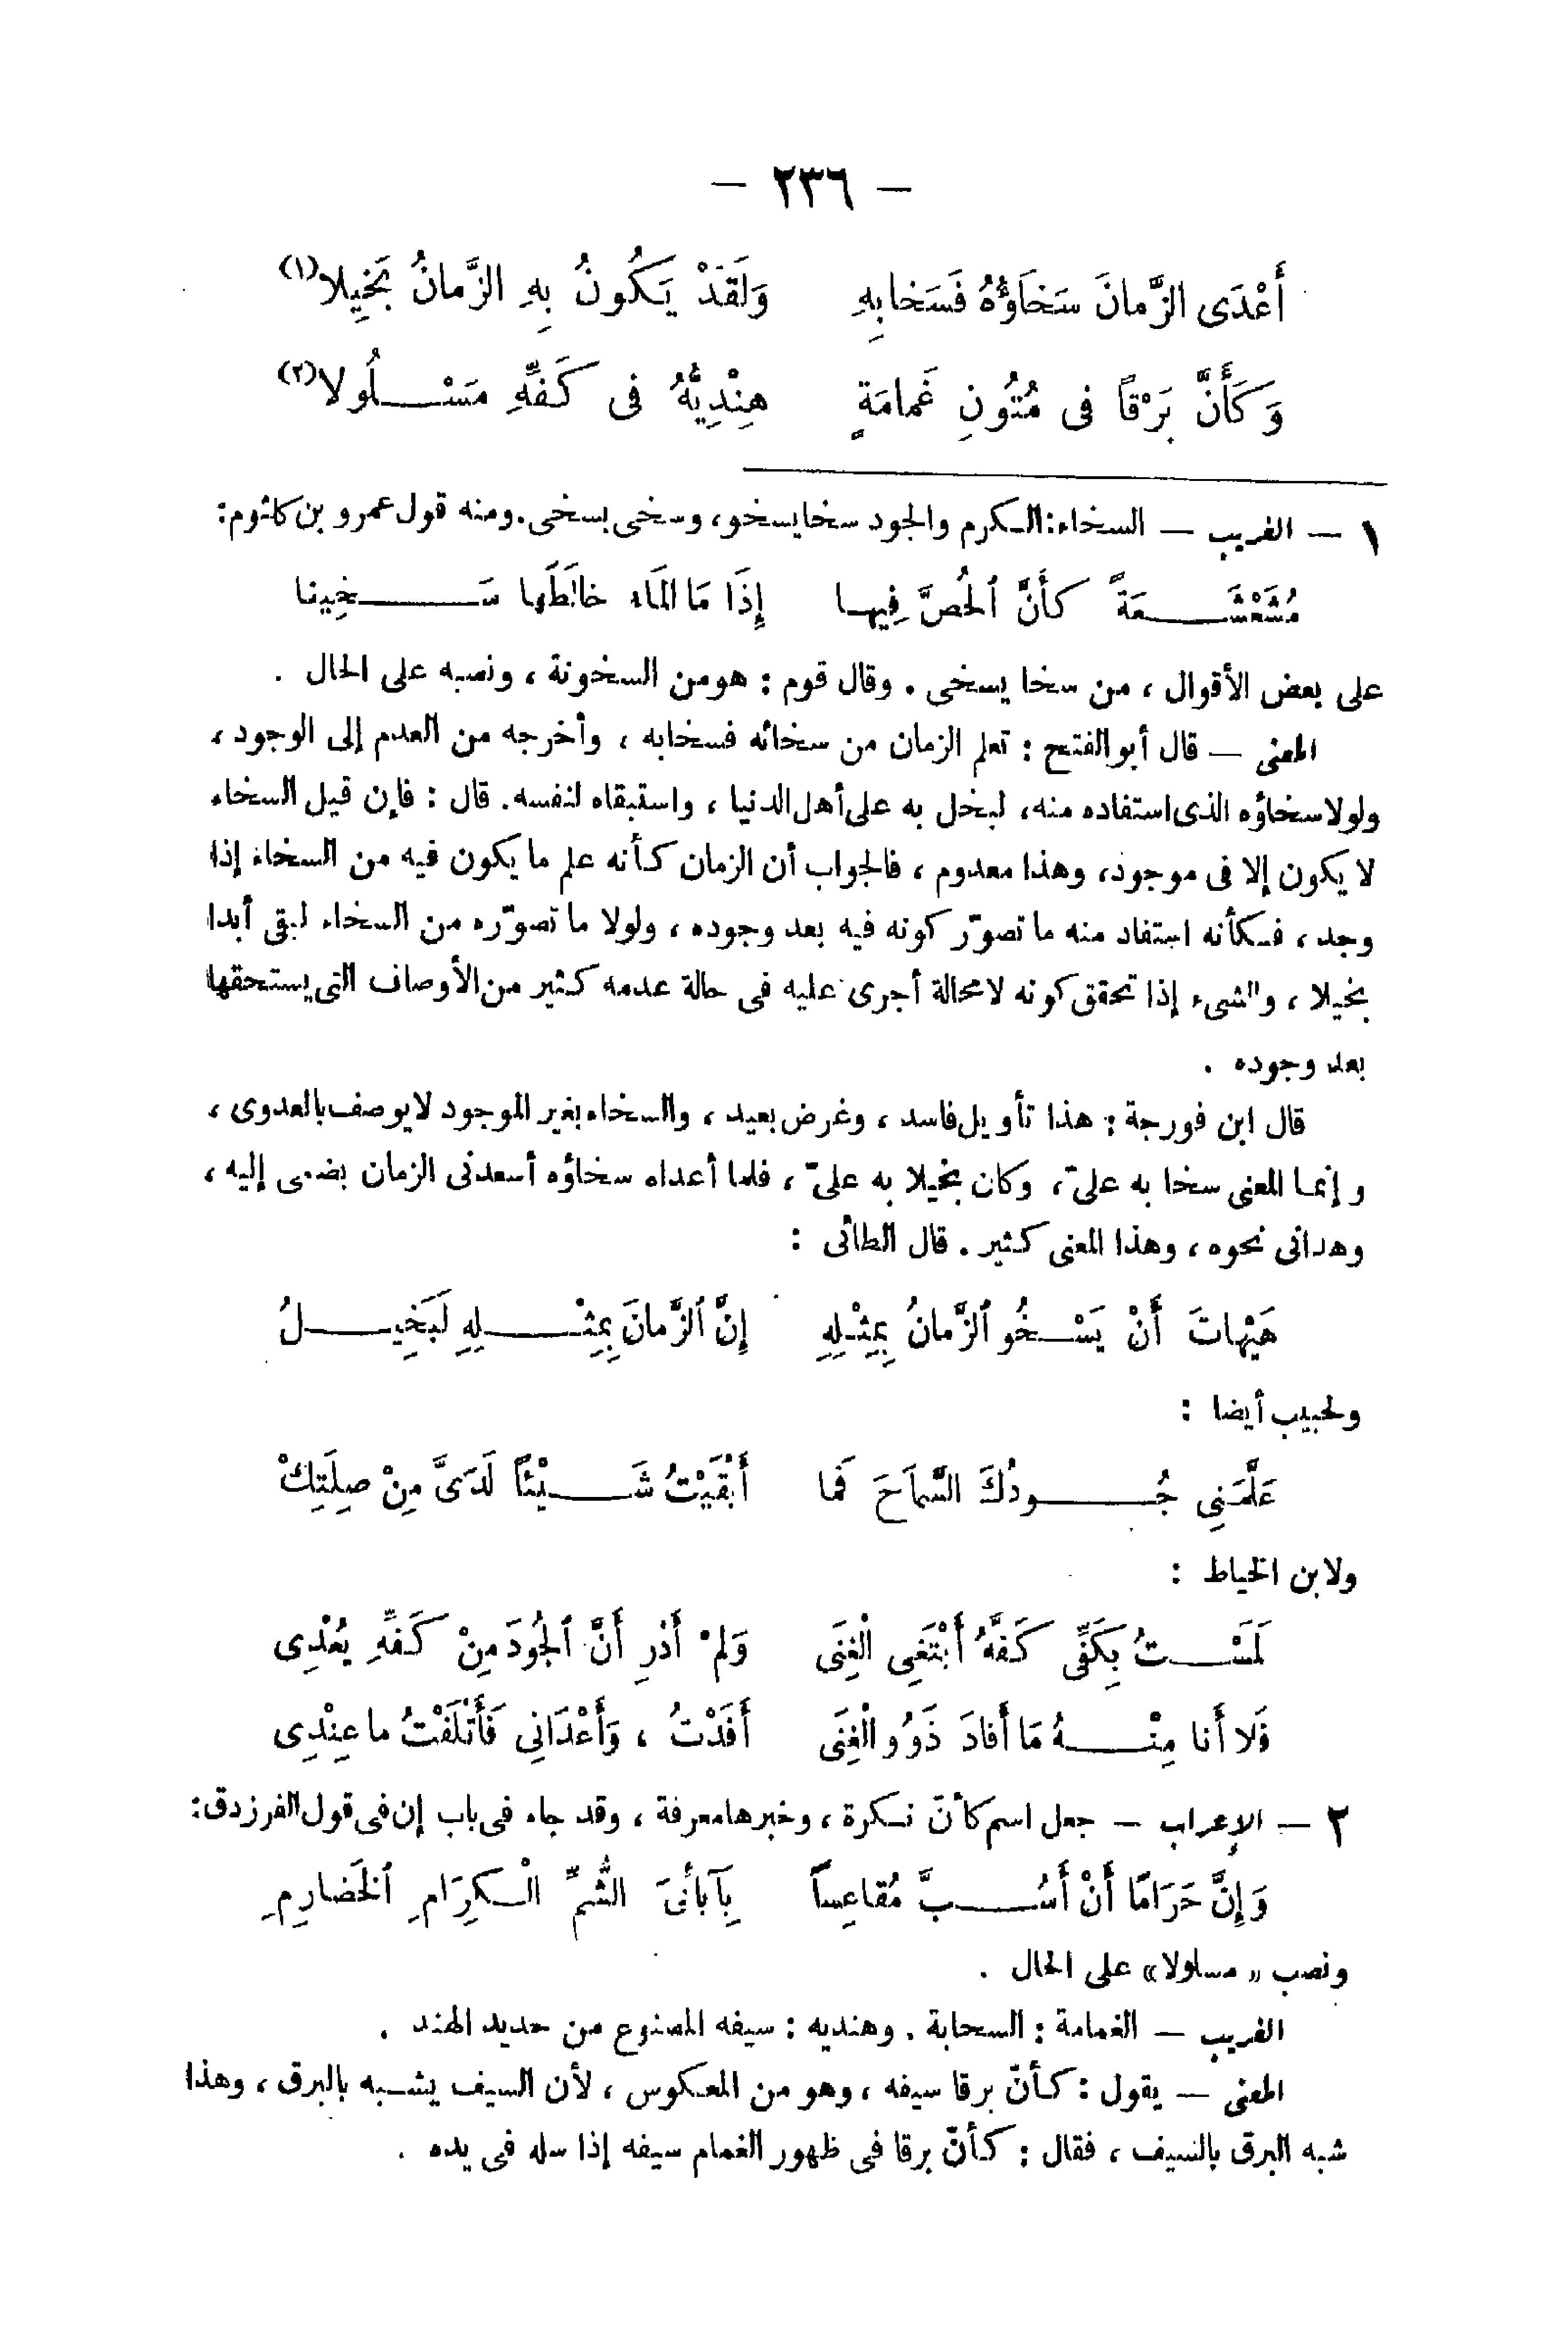 — ٢٣٦ —
أَعْدَى الزَّمانَ سَخَاؤُهُ فَسَخا بِهِ وَلَقَدْ يَكُونُ بِهِ الزَّمانُ بَخِيلا (١)
وَكَأَنَّ بَرْقاً فى مُتُونِ غَمامَةٍ هِنْدِيُّهُ فى كَفِّهِ مَسْلُولا (٢)
١ — الغريب — السخاء: الكرم والجود سخا يسخو، وسخى يسخى. ومنه قول عمرو بن كلثوم:
مُشَعْشَعَةً كأَنَّ الْحُصَّ فِيها إِذَا مَا المَاء خالَطَها سَخِينا
على بعض الأقوال، من سخا يسخى. وقال قوم: هو من السخونة، ونصبه على الحال.
المعنى — قال أبو الفتح: تعلم الزمان من سخائه فسخا به، وأخرجه من العدم إلى الوجود،
ولولا سخاؤه الذى استفاده منه، لبخل به على أهل الدنيا، واستبقاه لنفسه. قال: فإن قيل السخاء
لا يكون إلا فى موجود، وهذا معدوم، فالجواب أن الزمان كأنه علم ما يكون فيه من السخاء إذا
وجد، فكأنه استفاد منه ما تصوّر كونه فيه بعد وجوده، ولولا ما تصوّره من السخاء لبقى أبدا
بخيلا، والشىء إذا تحقق كونه لا محالة أجرى عليه فى حالة عدمه كثير من الأوصاف التى يستحقها
بعد وجوده.
قال ابن فورجة: هذا تأويل فاسد، وغرض بعيد، والسخاء بغير الموجود لا يوصف بالعدوى،
وإنما المعنى سخا به علىّ، وكان بخيلا به علىّ، فلما أعداه سخاؤه أسعدنى الزمان بضمى إليه،
وهدانى نحوه، وهذا المعنى كثير. قال الطائى:
هَيْهاتَ أَنْ يَسْخُو الزَّمانُ بِمِثْلِهِ إِنَّ الزَّمانَ بِمِثْلِهِ لَبَخِيلُ
ولحبيب أيضا:
عَلَّمَنِى جُودُكَ السَّماَحَ فَما أَبْقَيْتُ شَيْئاً لَدَىَّ مِنْ صِلَتِكْ
ولابن الخياط:
لَمَسْتُ بِكَفِّى كَفَّهُ أَبْتَغِى الْغِنَى وَلمْ أَدْرِ أَنَّ الْجُودَ مِنْ كَفِّهِ يُعْدِى
فَلا أَنا مِنْهُ مَا أَفادَ ذَوُو الْغِنَى أَفَدْتُ، وَأَعْدَانِى فَأَتْلَفْتُ ما عِنْدِى
٢ — الإعراب — جعل اسم كأنّ نكرة، وخبرها معرفة، وقد جاء فى باب إن فى قول الفرزدق:
وَإِنَّ حَرَامًا أَنْ أَسُبَّ مُقاعِساً بِآبائىَ الشُّمِّ الْكِرَامِ الْخَضارِمِ
ونصب «مسلولا» على الحال.
الغريب — الغمامة: السحابة. وهنديه: سيفه المصنوع من حديد الهند.
المعنى — يقول: كأنّ برقا سيفه، وهو من المعكوس، لأن السيف يشبه بالبرق، وهذا
شبه البرق بالسيف، فقال: كأنّ برقا فى ظهور الغمام سيفه إذا سله فى يده.